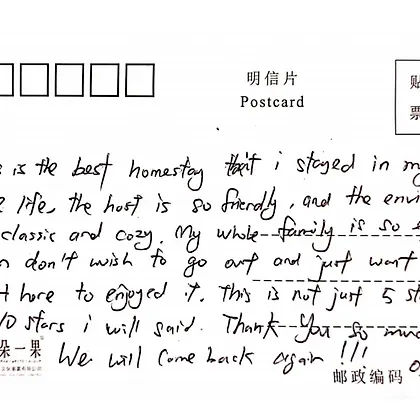 明信片
贴
Postcard
票
is the best homestay that i stayed in my
life, the host is so friendly, and the envi
classic and cozy. My whole family is so
don't wish to go out and just want
here to enjoyed it. This is not just 5 st
10 stars i will said. Thank you so muc
朵一果
We will come back again !!!
邮政编码